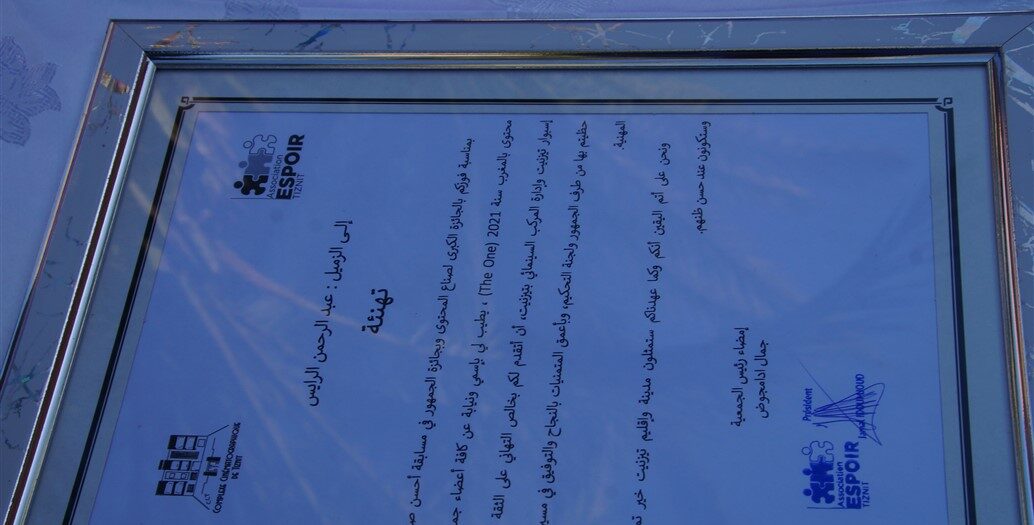 Association
ESPOIR
TIZNIT
COMPLEXE CINEMATOGRAPHIQUE
DE TIZNIT
إلى الزميل : عبد الرحمن الرايس
تهنئة
بمناسبة فوزكم بالجائزة الكبرى لصناع المحتوى وبجائزة الجمهور في مسابقة أحسن
محتوى بالمغرب سنة 2021 (The One) ، يطيب لي بإسمي ونيابة عن كافة أعضاء
إسبوار تيزنيت وإدارة المركب السينمائي بتيزنيت، أن أتقدم لكم بخالص التهاني على الثقة
حظيتم بها من طرف الجمهور ولجنة التحكيم، وبأعمق المتمنيات بالنجاح والتوفيق في
المهنية.
ونحن على أتم اليقين أنكم وكما عهدناكم ستمثلون مدينة وإقليم تيزنيت خير
وستكونون عند حسن ظنهم.
إمضاء رئيس الجمعية
جمال ادامجوض
Président
Association
ESPOIR
TIZNIT